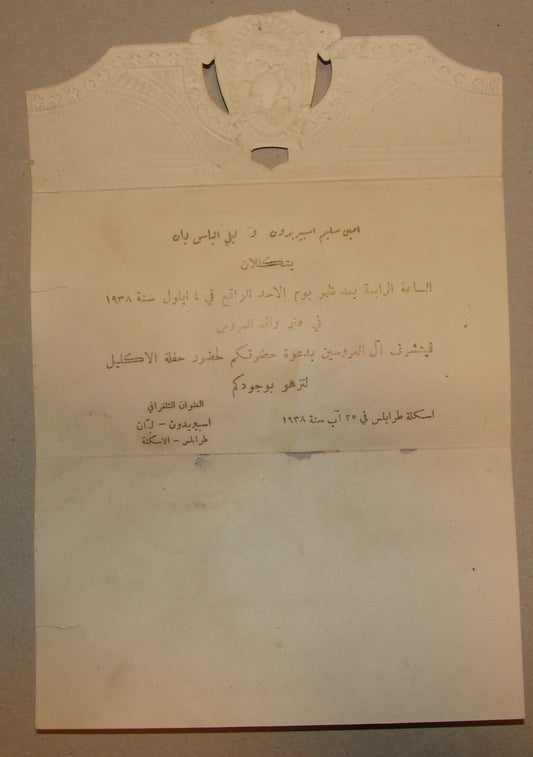 امين سليم اسبيريدون و ليلى الياس لبان
يتكللان
الساعة الرابعة بعد ظهر يوم الاحد الواقع في ٤ ايلول سنة ١٩٣٨
في دار والد العروس
فيتشرف آل العروسين بدعوة حضرتكم لحضور حفلة الاكليل
لتزهو بوجودكم
اسكلة طرابلس في ٢٥ آب سنة ١٩٣٨
العنوان التلغرافي
اسبيريدون - لبان
طرابلس - الاسكلة